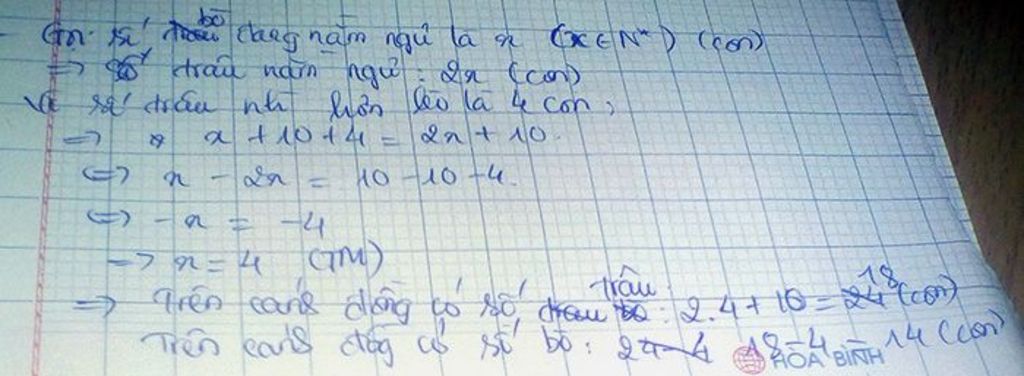 Gọi số bò đang nằm ngủ là x (x ∈ N*) (con)
=> Số trâu nằm ngủ: 2x (con)
Vì số trâu nh hơn bò là 4 con,
=> x + 10 + 4 = 2x + 10.
<=> x - 2x = 10 - 10 - 4.
<=> -x = -4
-> x = 4 (TM)
=> Trên cánh đồng có số trâu: 2.4 + 10 = 18 (con)
Trên cánh đồng có số bò: 18 - 4 14 (con)
HÒA BÌNH